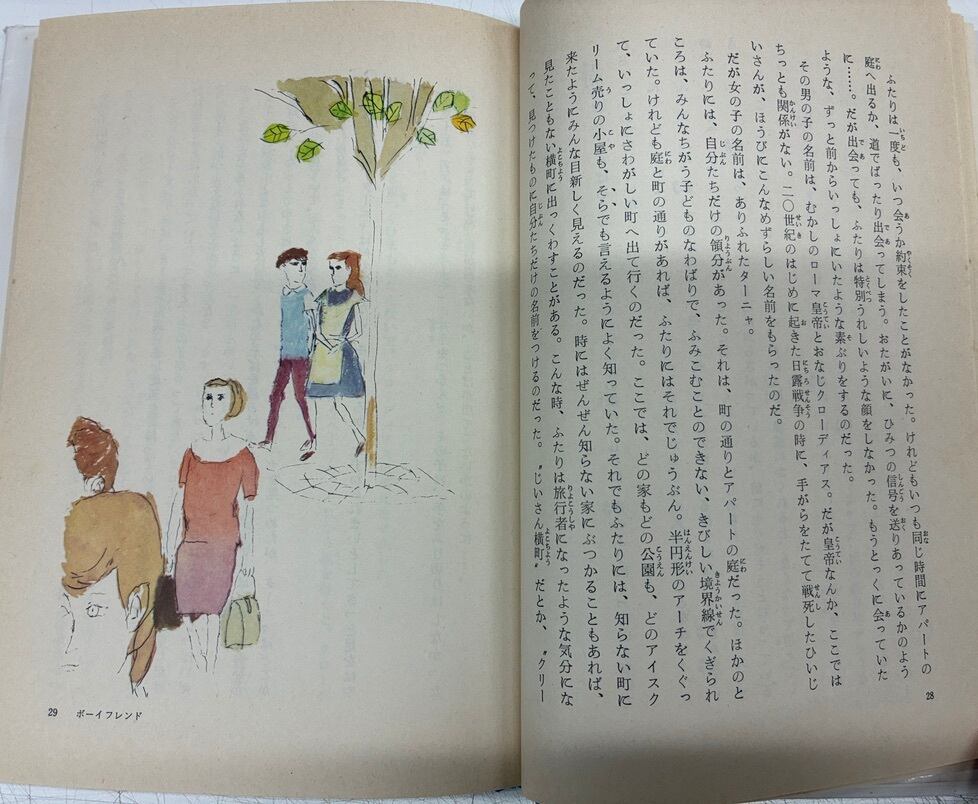 ふたりは一度も、いつ会うか約束をしたことがなかった。けれどもいつも同じ時間にアパートの
庭へ出るか、道でばったり出会ってしまう。おたがいに、ひみつの信号を送りあっているかのよう
に……。だが出会っても、ふたりは特別うれしいような顔をしなかった。もうとっくに会っていた
ような、ずっと前からいっしょにいたような素ぶりをするのだった。
その男の子の名前は、むかしのローマ皇帝とおなじクローディアス。だが皇帝なんか、ここでは
ちっとも関係がない。二〇世紀のはじめに起きた日露戦争の時に、手がらをたてて戦死したひいじ
いさんが、ほうびにこんなめずらしい名前をもらったのだ。
だが女の子の名前は、ありふれたターニャ。
ふたりには、自分たちだけの領分があった。それは、町の通りとアパートの庭だった。ほかのと
ころは、みんなちがう子どものなわばりで、ふみこむことのできない、きびしい境界線でくぎられ
ていた。けれども庭と町の通りがあれば、ふたりにはそれでじゅうぶん。半円形のアーチをくぐっ
て、いっしょにさわがしい町へ出て行くのだった。ここでは、どの家もどの公園も、どのアイスク
リーム売りの小屋も、そらでも言えるようによく知っていた。それでもふたりには、知らない町に
来たようにみんな目新しく見えるのだった。時にはぜんぜん知らない家にぶつかることもあれば、
見たこともない横町に出っくわすことがある。こんな時、ふたりは旅行者になったような気分にな
って、見つけたものに自分たちだけの名前をつけるのだった。〝じいさん横町〟だとか、〝クリー
28
29 ボーイフレンド